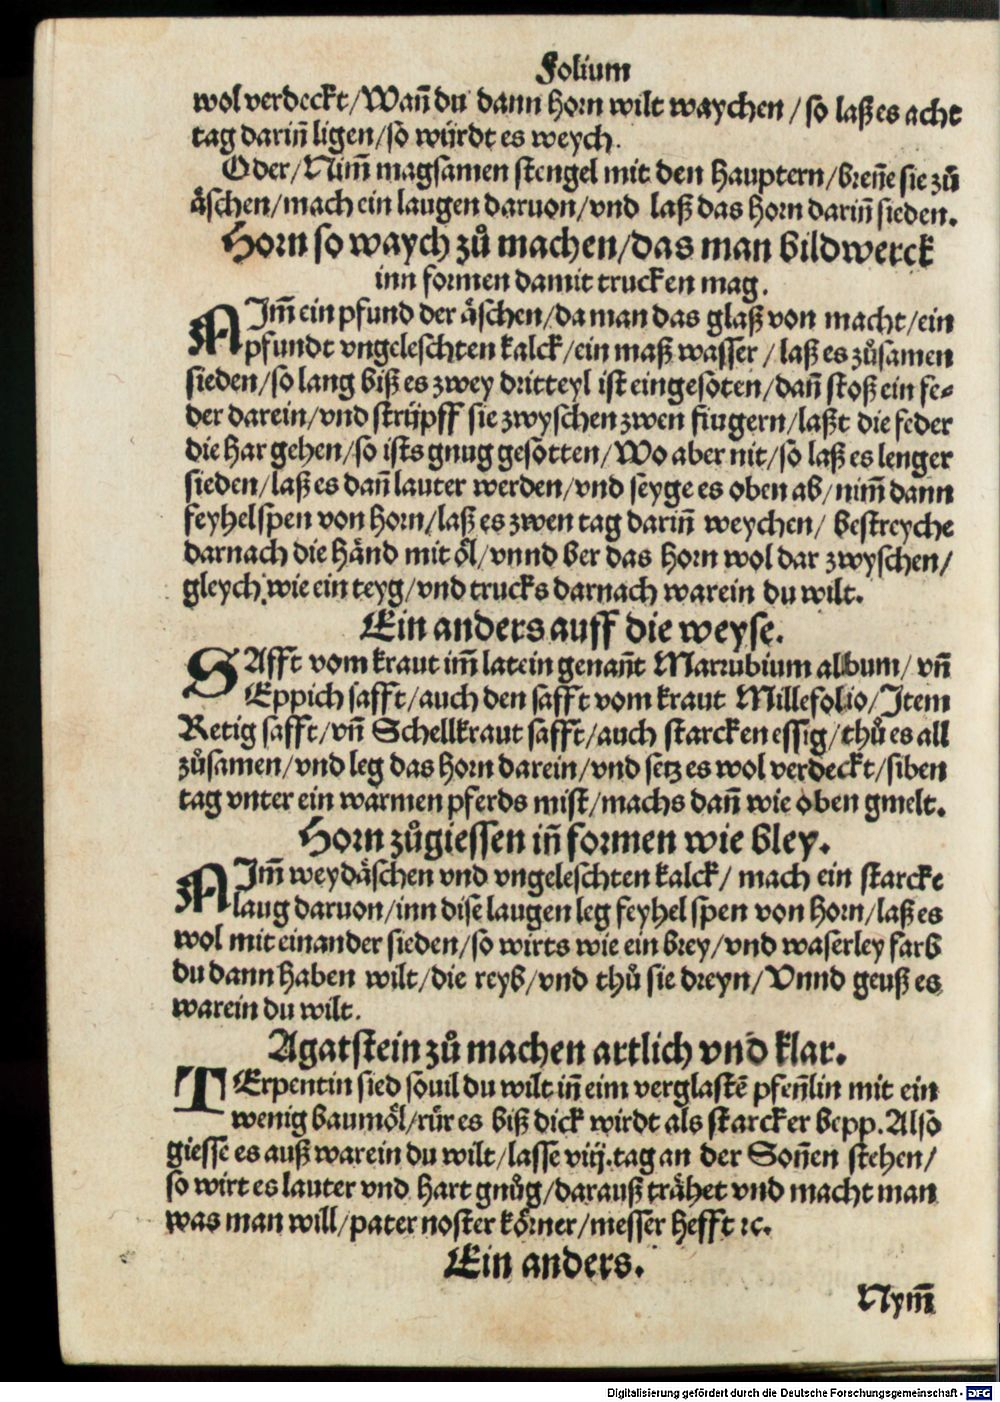 Folium
wol verdeckt/Wañ du dann horn wilt waychen/so laß es acht
tag dariñ ligen/so würdt es weych.
Oder/Nim̃ magsamen stengel mit den hauptern/breñe sie zů
äschen/mach ein laugen daruon/vnd laß das horn dariñ sieden.
Horn so waych zů machen/das man bildwerck
inn formen damit trucken mag.
NIm̃ ein pfund der äschen/da man das glaß von macht/ein
pfundt vngeleschten kalck/ein maß wasser/laß es zůsamen
sieden/so lang biß es zwey dritteyl ist eingesoten/dañ stoß ein fe-
der darein/vnd strijpff sie zwyschen zwen fiugern/laßt die feder
die har gehen/so ists gnug gesotten/Wo aber nit/so laß es lenger
sieden/laß es dañ lauter werden/vnd seyge es oben ab/nim̃ dann
feyhelspen von horn/laß es zwen tag dariñ weychen/bestreyche
darnach die händ mit öl/vnnd ber das horn wol dar zwyschen/
gleych wie ein teyg/vnd trucks darnach warein du wilt.
Ein anders auff die weyse.
SAfft vom kraut im̃ latein genañt Marrubium album/vñ
Eppich safft/auch den safft vom kraut Millefolio/Item
Retig safft/vñ Schellkraut safft/auch starcken essig/thů es all
zůsamen/vnd leg das horn darein/vnd setz es wol verdeckt/siben
tag vnter ein warmen pferds mist/machs dañ wie oben gmelt.
Horn zůgiessen iñ formen wie bley.
NIm̃ weydäschen vnd vngeleschten kalck/mach ein starcke
laug daruon/inn dise laugen leg feyhel spen von horn/laß es
wol mit einander sieden/so wirts wie ein brey/vnd waserley farb
du dann haben wilt/die reyb/vnd thů sie dreyn/Vnnd geuß es
warein du wilt.
Agatstein zů machen artlich vnd klar.
TErpentin sied souil du wilt iñ eim verglastē pfeñlin mit ein
wenig baumöl/rür es biß dick wirdt als starcker bepp. Also
giesse es auß warein du wilt/lasse viij.tag an der Soñen stehen/
so wirt es lauter vnd hart gnůg/darauß trähet vnd macht man
was man will/pater noster körner/messer hefft ꝛc.
Ein anders.
Nym̃
Digitalisierung gefördert durch die Deutsche Forschungsgemeinschaft - DFG